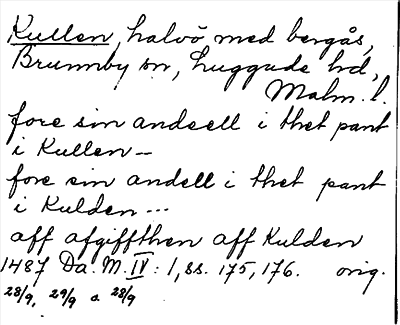 Kullen, halvö med bergås,
Brunnby sn, Luggude hd,
Malm. l.
fore sin andeell i thet pant
i Kullen —
fore sin andell i thet pant
i Kulden ---
aff afgiffthen aff Kulden
1487 Da. M. IV: 1, ss. 175, 176. orig.
28/9, 29/9 o 28/9